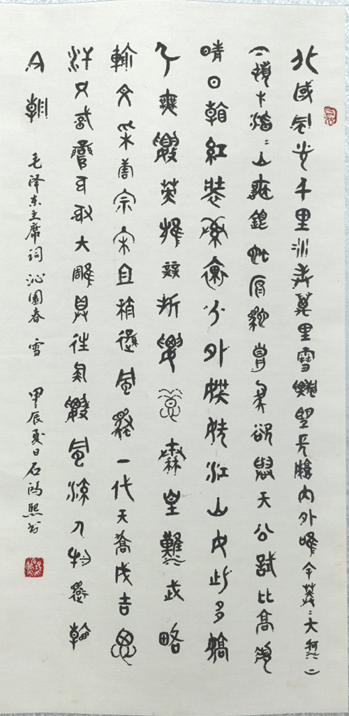 北國風光千里冰封萬里雪飄望長城內外惟余莽〻大河上
下頓失滔〻山舞銀蛇原馳蠟象欲與天公試比高須
晴日看紅裝素裹分外妖嬈江山如此多嬌
引無數英雄競折腰惜秦皇漢武略
輸文采唐宗宋祖稍遜風騷一代天驕成吉思
汗只識彎弓射大雕俱往矣數風流人物還看
今朝 毛泽东主席词 沁園春 雪 甲辰夏日石鸿熙书